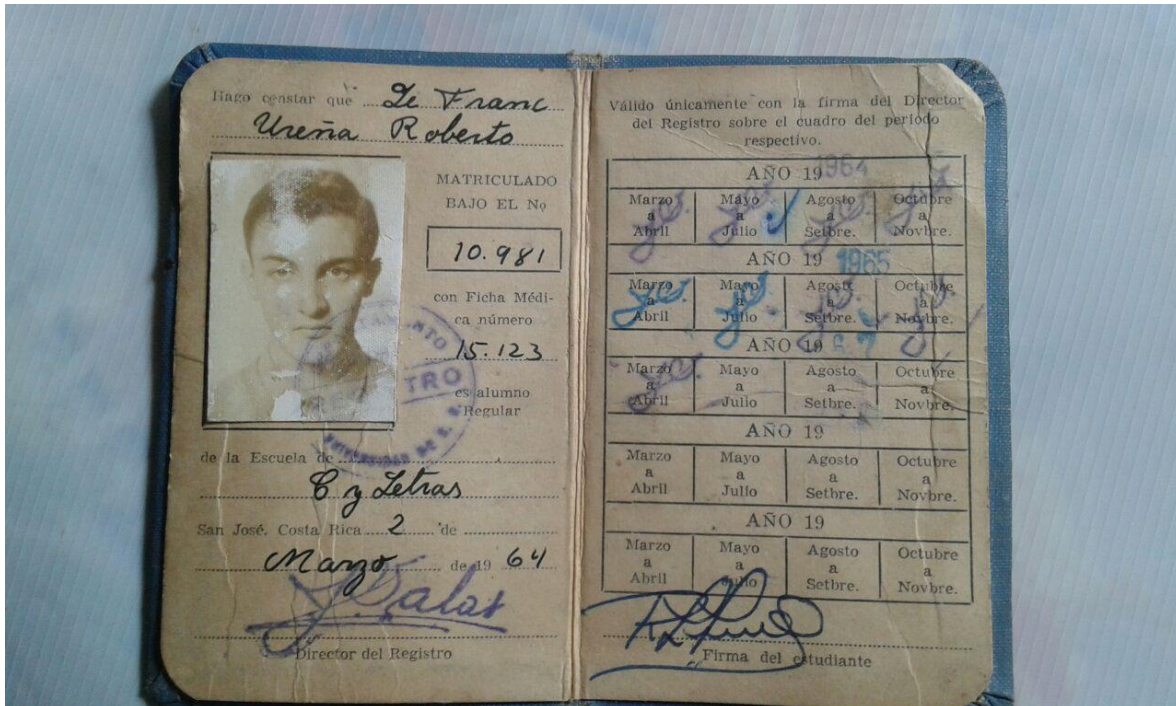 Hago constar que Le Franc
Ureña Roberto
MATRICULADO
BAJO EL Nº
10.981
con Ficha Médi-
ca número
15.123
es alumno
Regular
de la Escuela de
C y Letras
San José, Costa Rica 2 de
Marzo de 19 64
J Salas
Director del Registro
TRO
UNIVERSIDAD DE C. R.
Válido únicamente con la firma del Director
del Registro sobre el cuadro del período
respectivo.
AÑO 19 1964
Marzo a Abril Mayo a Julio Agosto a Setbre. Octubre a Novbre.
AÑO 19 1965
Marzo a Abril Mayo a Julio Agosto a Setbre. Octubre a Novbre.
AÑO 19
Marzo a Abril Mayo a Julio Agosto a Setbre. Octubre a Novbre.
AÑO 19
Marzo a Abril Mayo a Julio Agosto a Setbre. Octubre a Novbre.
AÑO 19
Marzo a Abril Mayo a Julio Agosto a Setbre. Octubre a Novbre.
Firma del estudiante